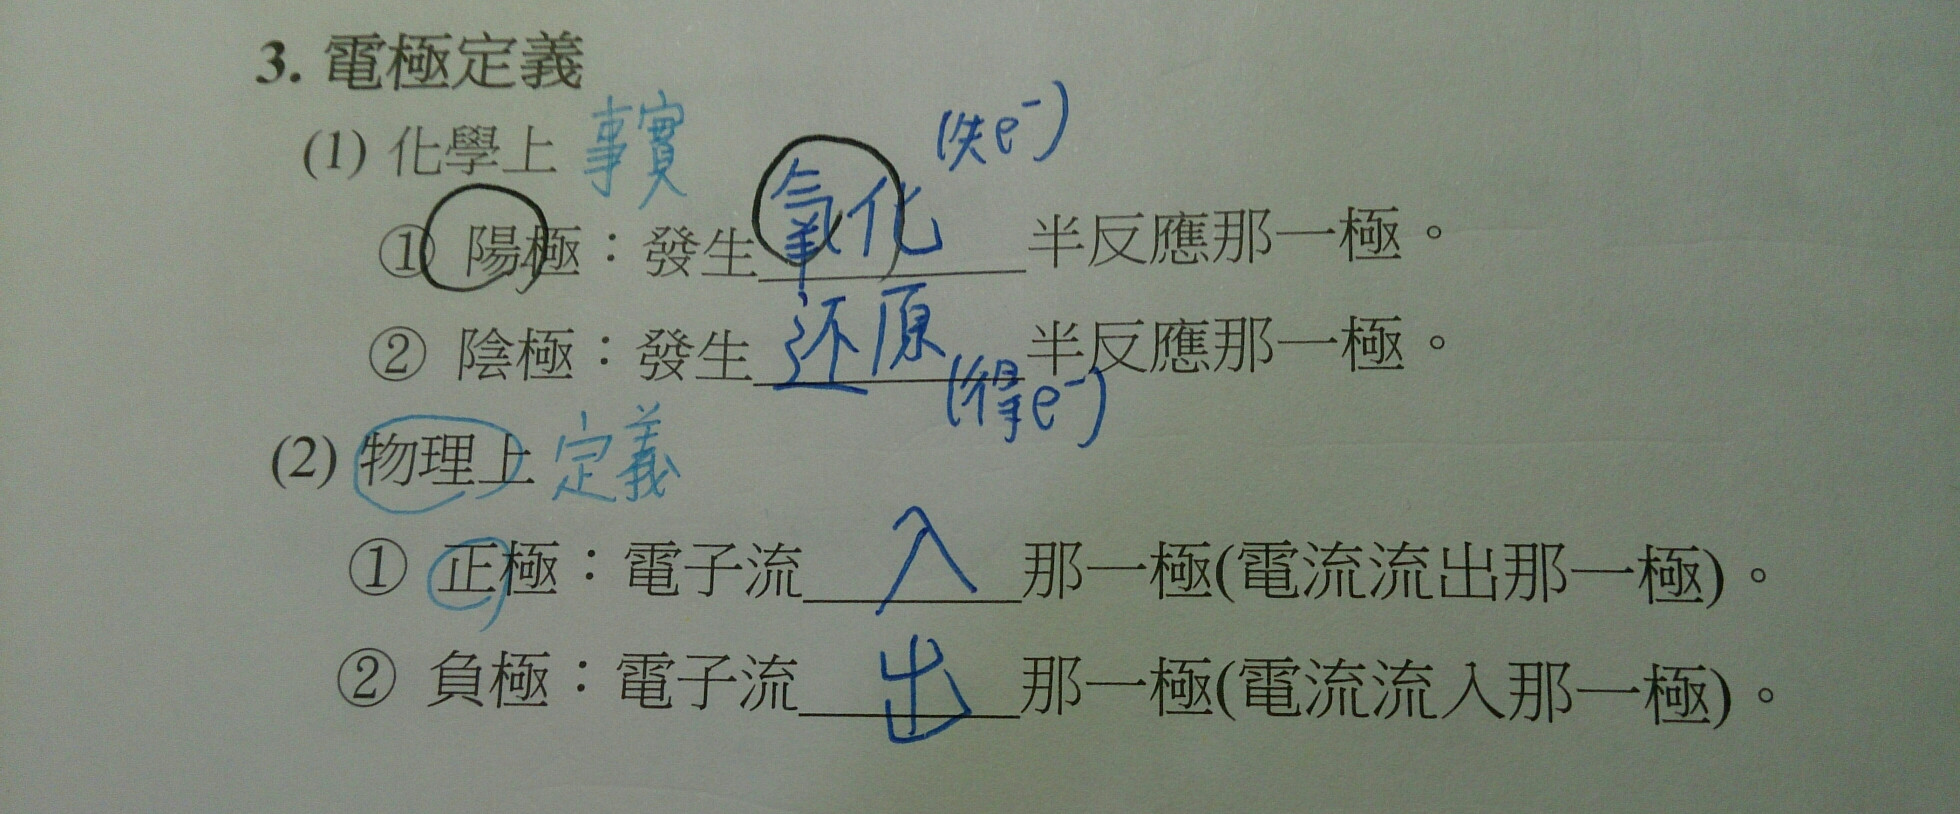 3. 電極定義
(1) 化學上 事實
(失e⁻)
① 陽極：發生氧化半反應那一極。
② 陰極：發生还原半反應那一極。
(得e⁻)
(2) 物理上 定義
① 正極：電子流入那一極(電流流出那一極)。
② 負極：電子流出那一極(電流流入那一極)。